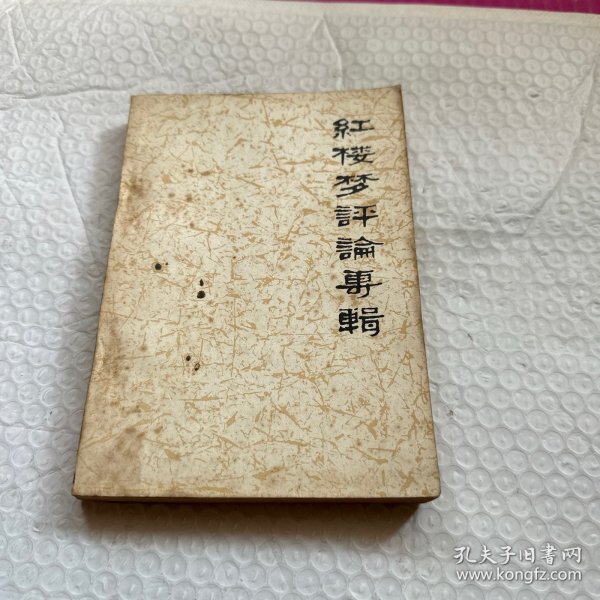 紅楼梦評論専輯
孔夫子旧书网
www.kongfz.com